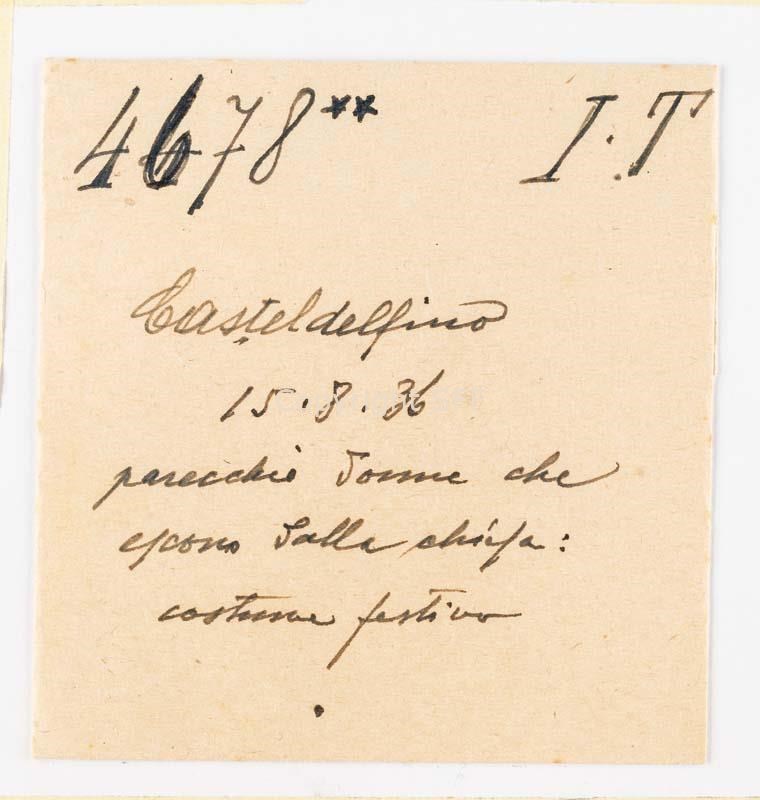 4678** I.T
Casteldelfino
15.8.36
parecchie donne che
escono dalla chiesa:
costume festivo